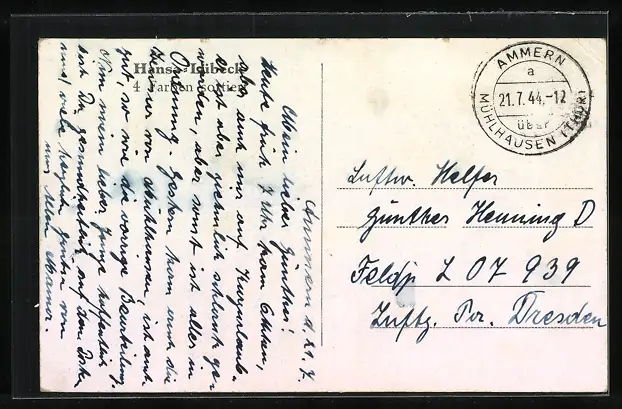 Hansa-Lübeck
4 Farben sortiert
AMMERN
a
21.7.44.-12
über
MÜHLHAUSEN (THÜR)
Luftw. Helfer
Günther Henning D
Feldp L 07 939
Luftg. Pv. Dresden
Ammern d. 21. 7.
Mein lieber Günther!
Heute früh 7 Uhr kam
also auch nur auf Kurzurlaub.
er ist aber ziemlich schlank ge-
worden, aber sonst ist alles in
Ordnung. Gestern kam auch die
von Mühlhausen, ist auch
gut, so wie die vorige Beurteilung.
Nun mein lieber Junge hoffentlich
bist Du gesundheitlich auf dem Posten
und viele herzliche Grüße von
Mama.